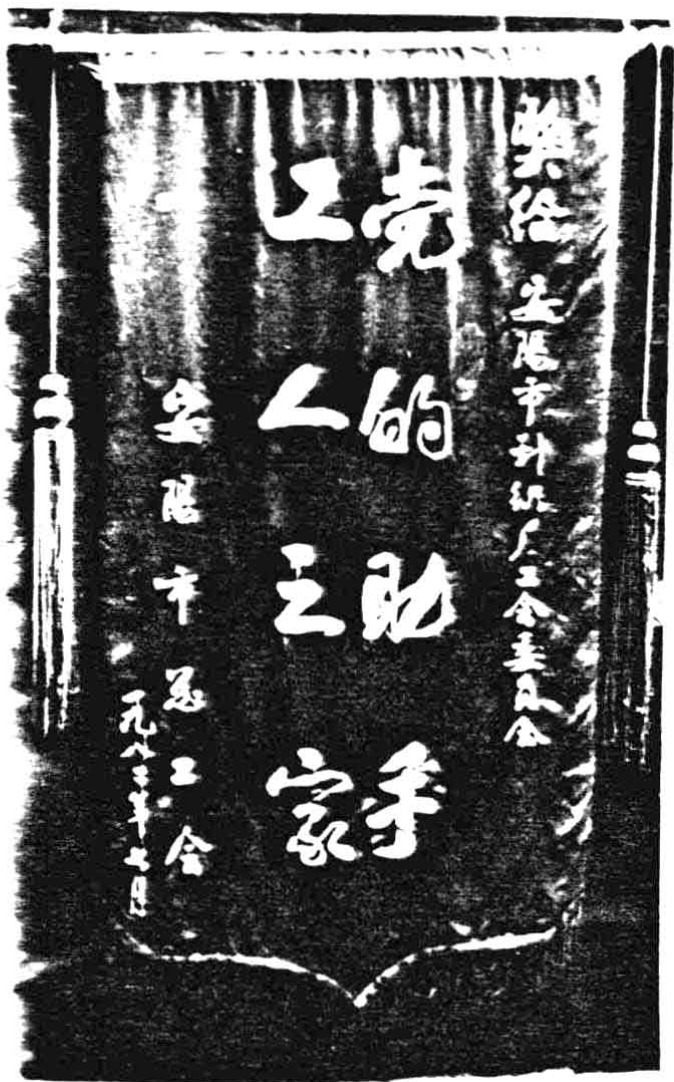 奖给 安阳市针织厂工会委员会
党的助手
工人之家
安阳市总工会
一九八二年七月